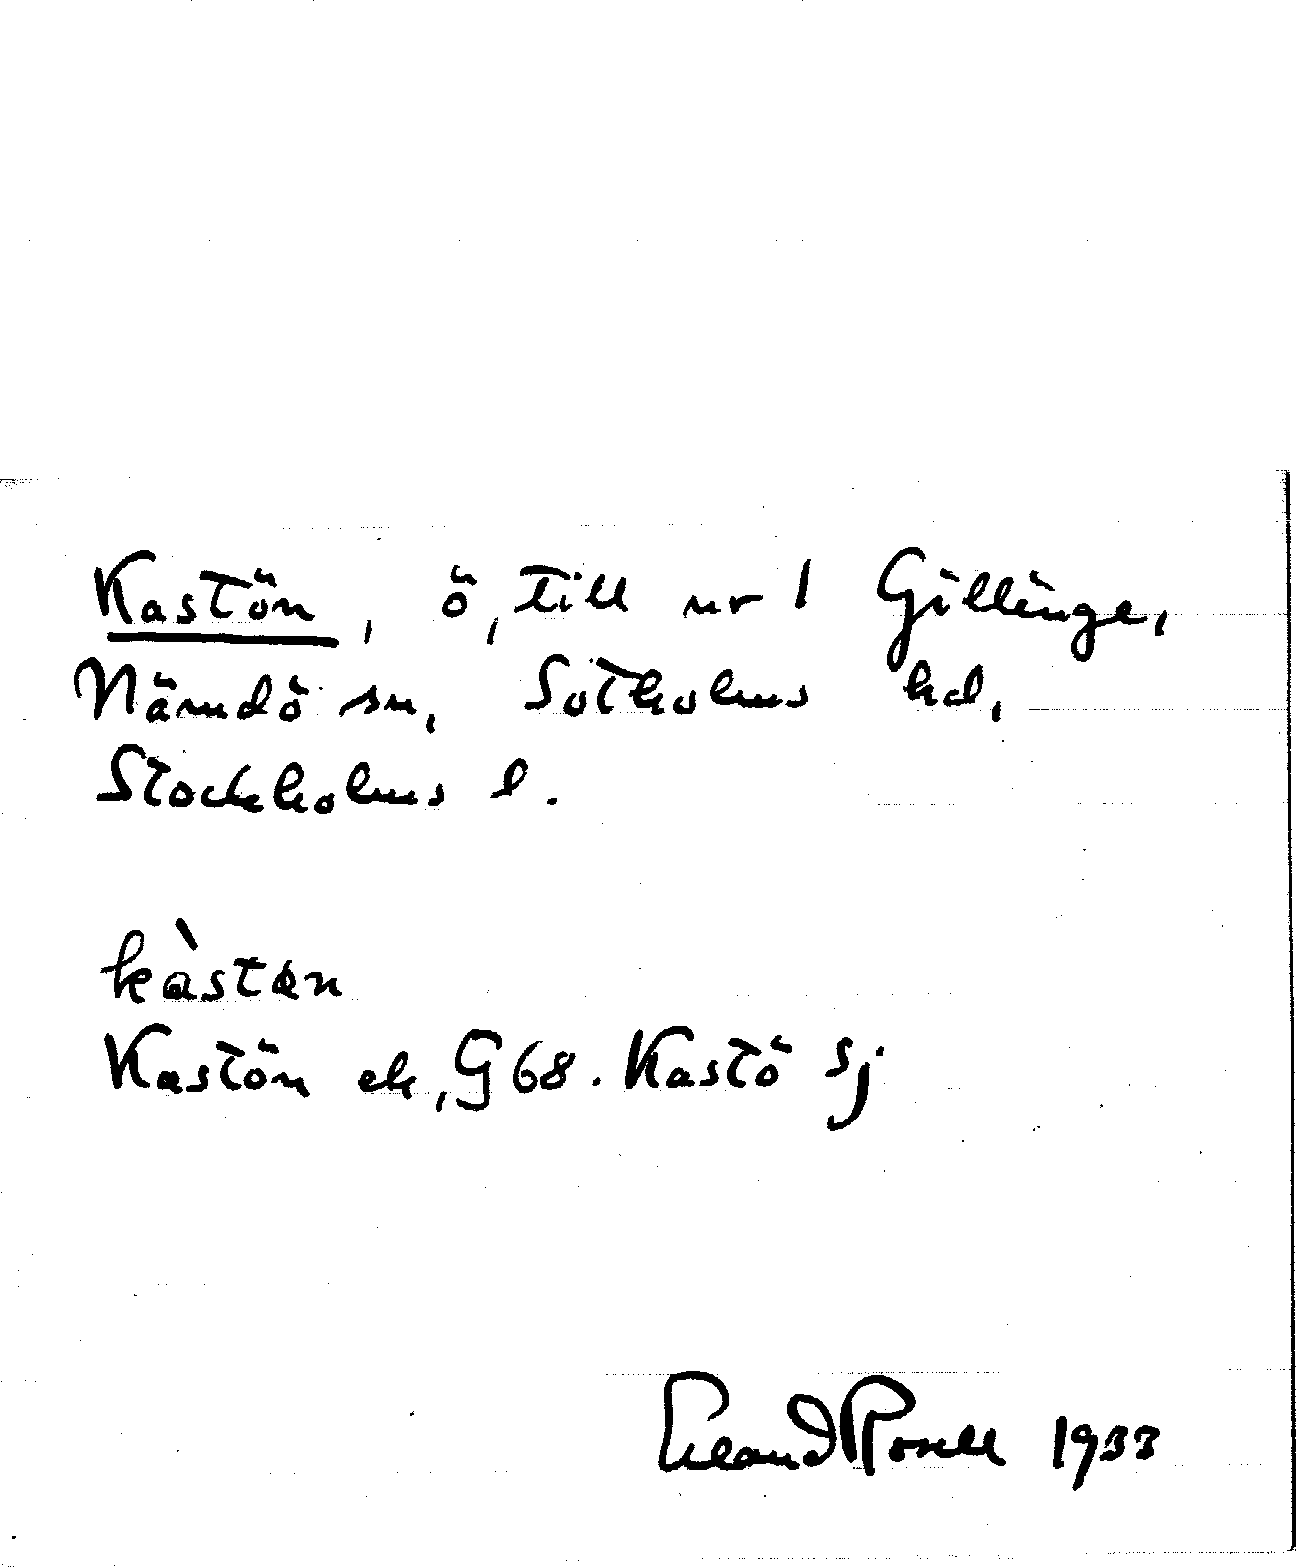 Kastön, ö, till nr 1 Gillinge,
Nämdö sn, Sotholms hd,
Stockholms l.
kàstan
Kastön ek, G 68. Kastö sj
Erland Rosell 1933